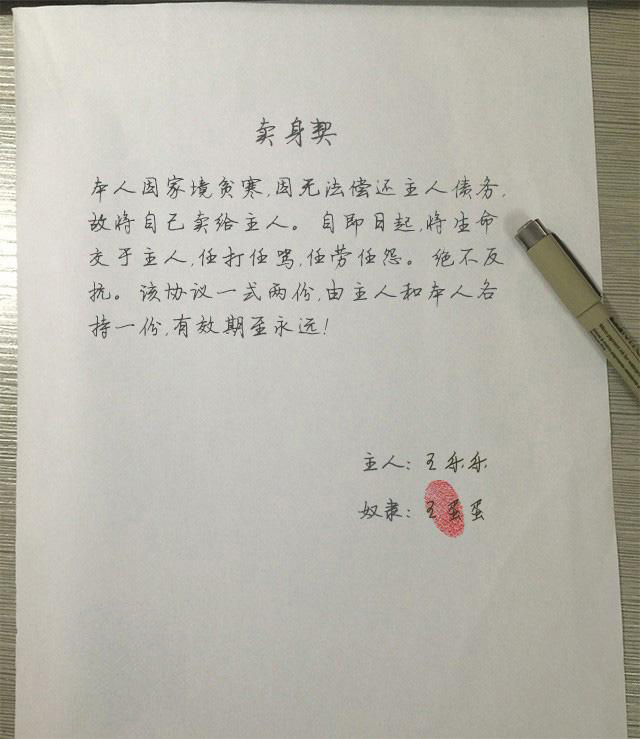 卖身契
本人因家境贫寒,因无法偿还主人债务,
故将自己卖给主人。自即日起,将生命
交于主人,任打任骂,任劳任怨。绝不反
抗。该协议一式两份,由主人和本人各
持一份,有效期至永远!
主人:王乐乐
奴隶:王蛋蛋